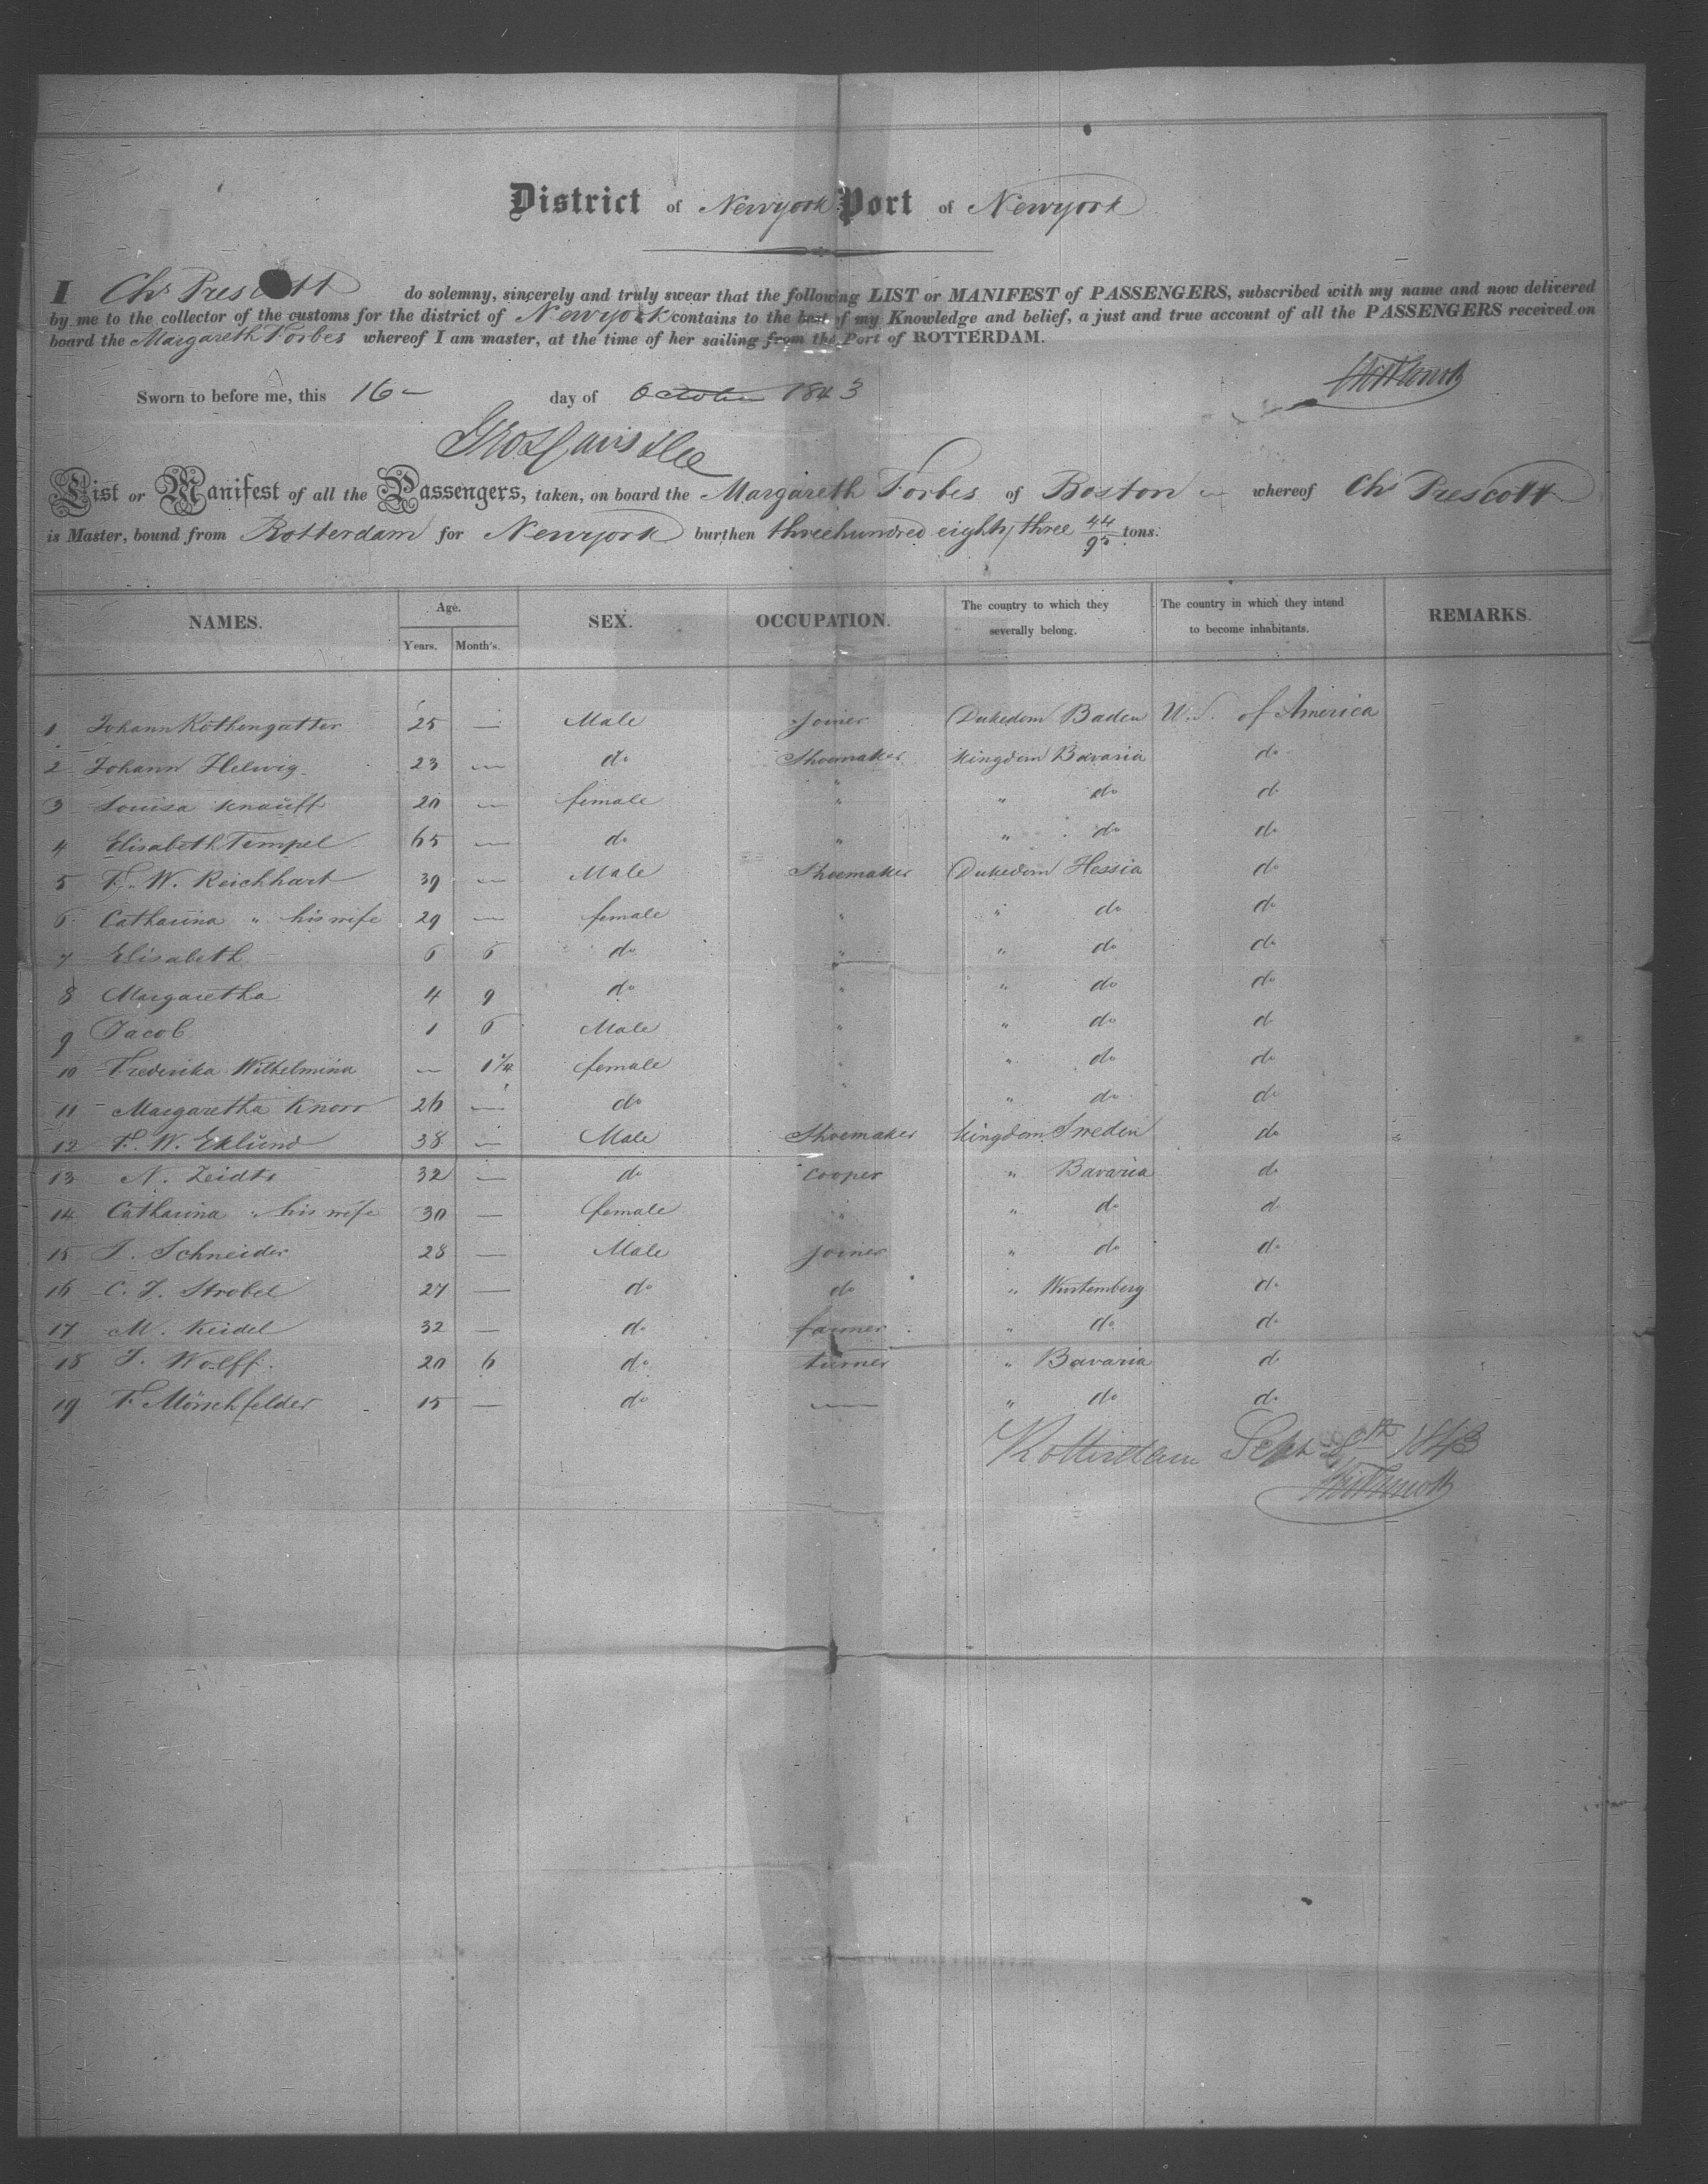 District of Newyork Port of Newyork
I Chs Prescott do solemny, sincerely and truly swear that the following LIST or MANIFEST of PASSENGERS, subscribed with my name and now delivered
by me to the collector of the customs for the district of Newyork contains to the best of my Knowledge and belief, a just and true account of all the PASSENGERS received on
board the Margareth Forbes whereof I am master, at the time of her sailing from the Port of ROTTERDAM.
Sworn to before me, this 16 day of October 1843
List or Manifest of all the Passengers, taken, on board the Margareth Forbes of Boston whereof Chs Prescott
is Master, bound from Rotterdam for Newyork burthen threehundred eighty three 44/95 tons.
NAMES. Age. Years. Month's. SEX. OCCUPATION. The country to which they severally belong. The country in which they intend to become inhabitants. REMARKS.
1 Johann Rothengatter 25 — Male Joiner Dukedom Baden U.S. of America
2 Johann Helwig 23 — do Shoemaker kingdom Bavaria do
3 Louisa Knauff 20 — female " " do do
4 Elisabeth Tempel 65 — do " " do do
5 F. W. Reichhart 39 — Male Shoemaker Dukedom Hessia do
6 Catharina " his wife 29 — female " " do do
7 Elisabeth 6 6 do " " do do
8 Margaretha 4 9 do " " do do
9 Jacob 1 6 Male " " do do
10 Frederika Wilhelmina — 1 1/4 female " " do do
11 Margaretha Knorr 26 — do " " do do
12 F. W. Eklund 38 — Male Shoemaker kingdom Sweden do
13 N. Zeidts 32 — do cooper " Bavaria do
14 Catharina " his wife 30 — female " " do do
15 J. Schneider 28 — Male Joiner " do do
16 C. J. Strobel 27 — do do " Wurtemberg do
17 M. Keidel 32 — do farmer " do do
18 J. Wolff 20 6 do turner " Bavaria do
19 F. Mörschfelder 15 — do — " do do
Rotterdam Sept 8th 1843